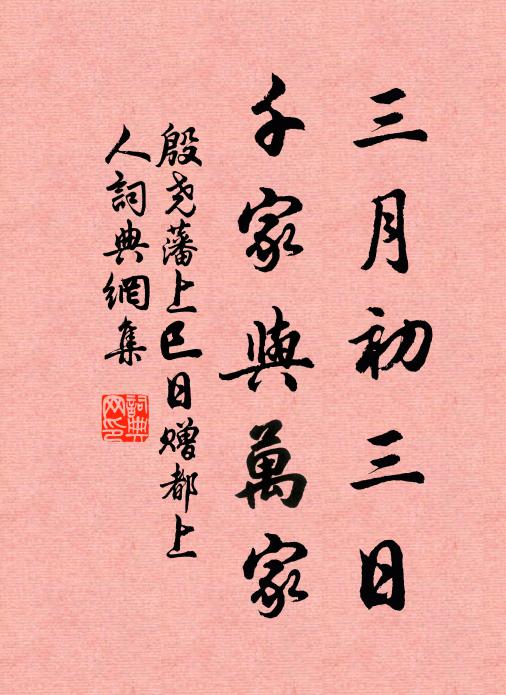 三月初三日
千家與萬家
殷尧藩上巳日赠都上
人詞典網集
詞典网印